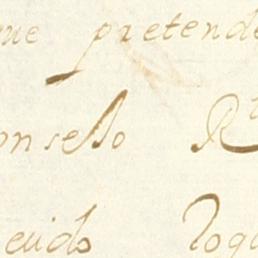 que pretende
onsello Rl
euido loqu